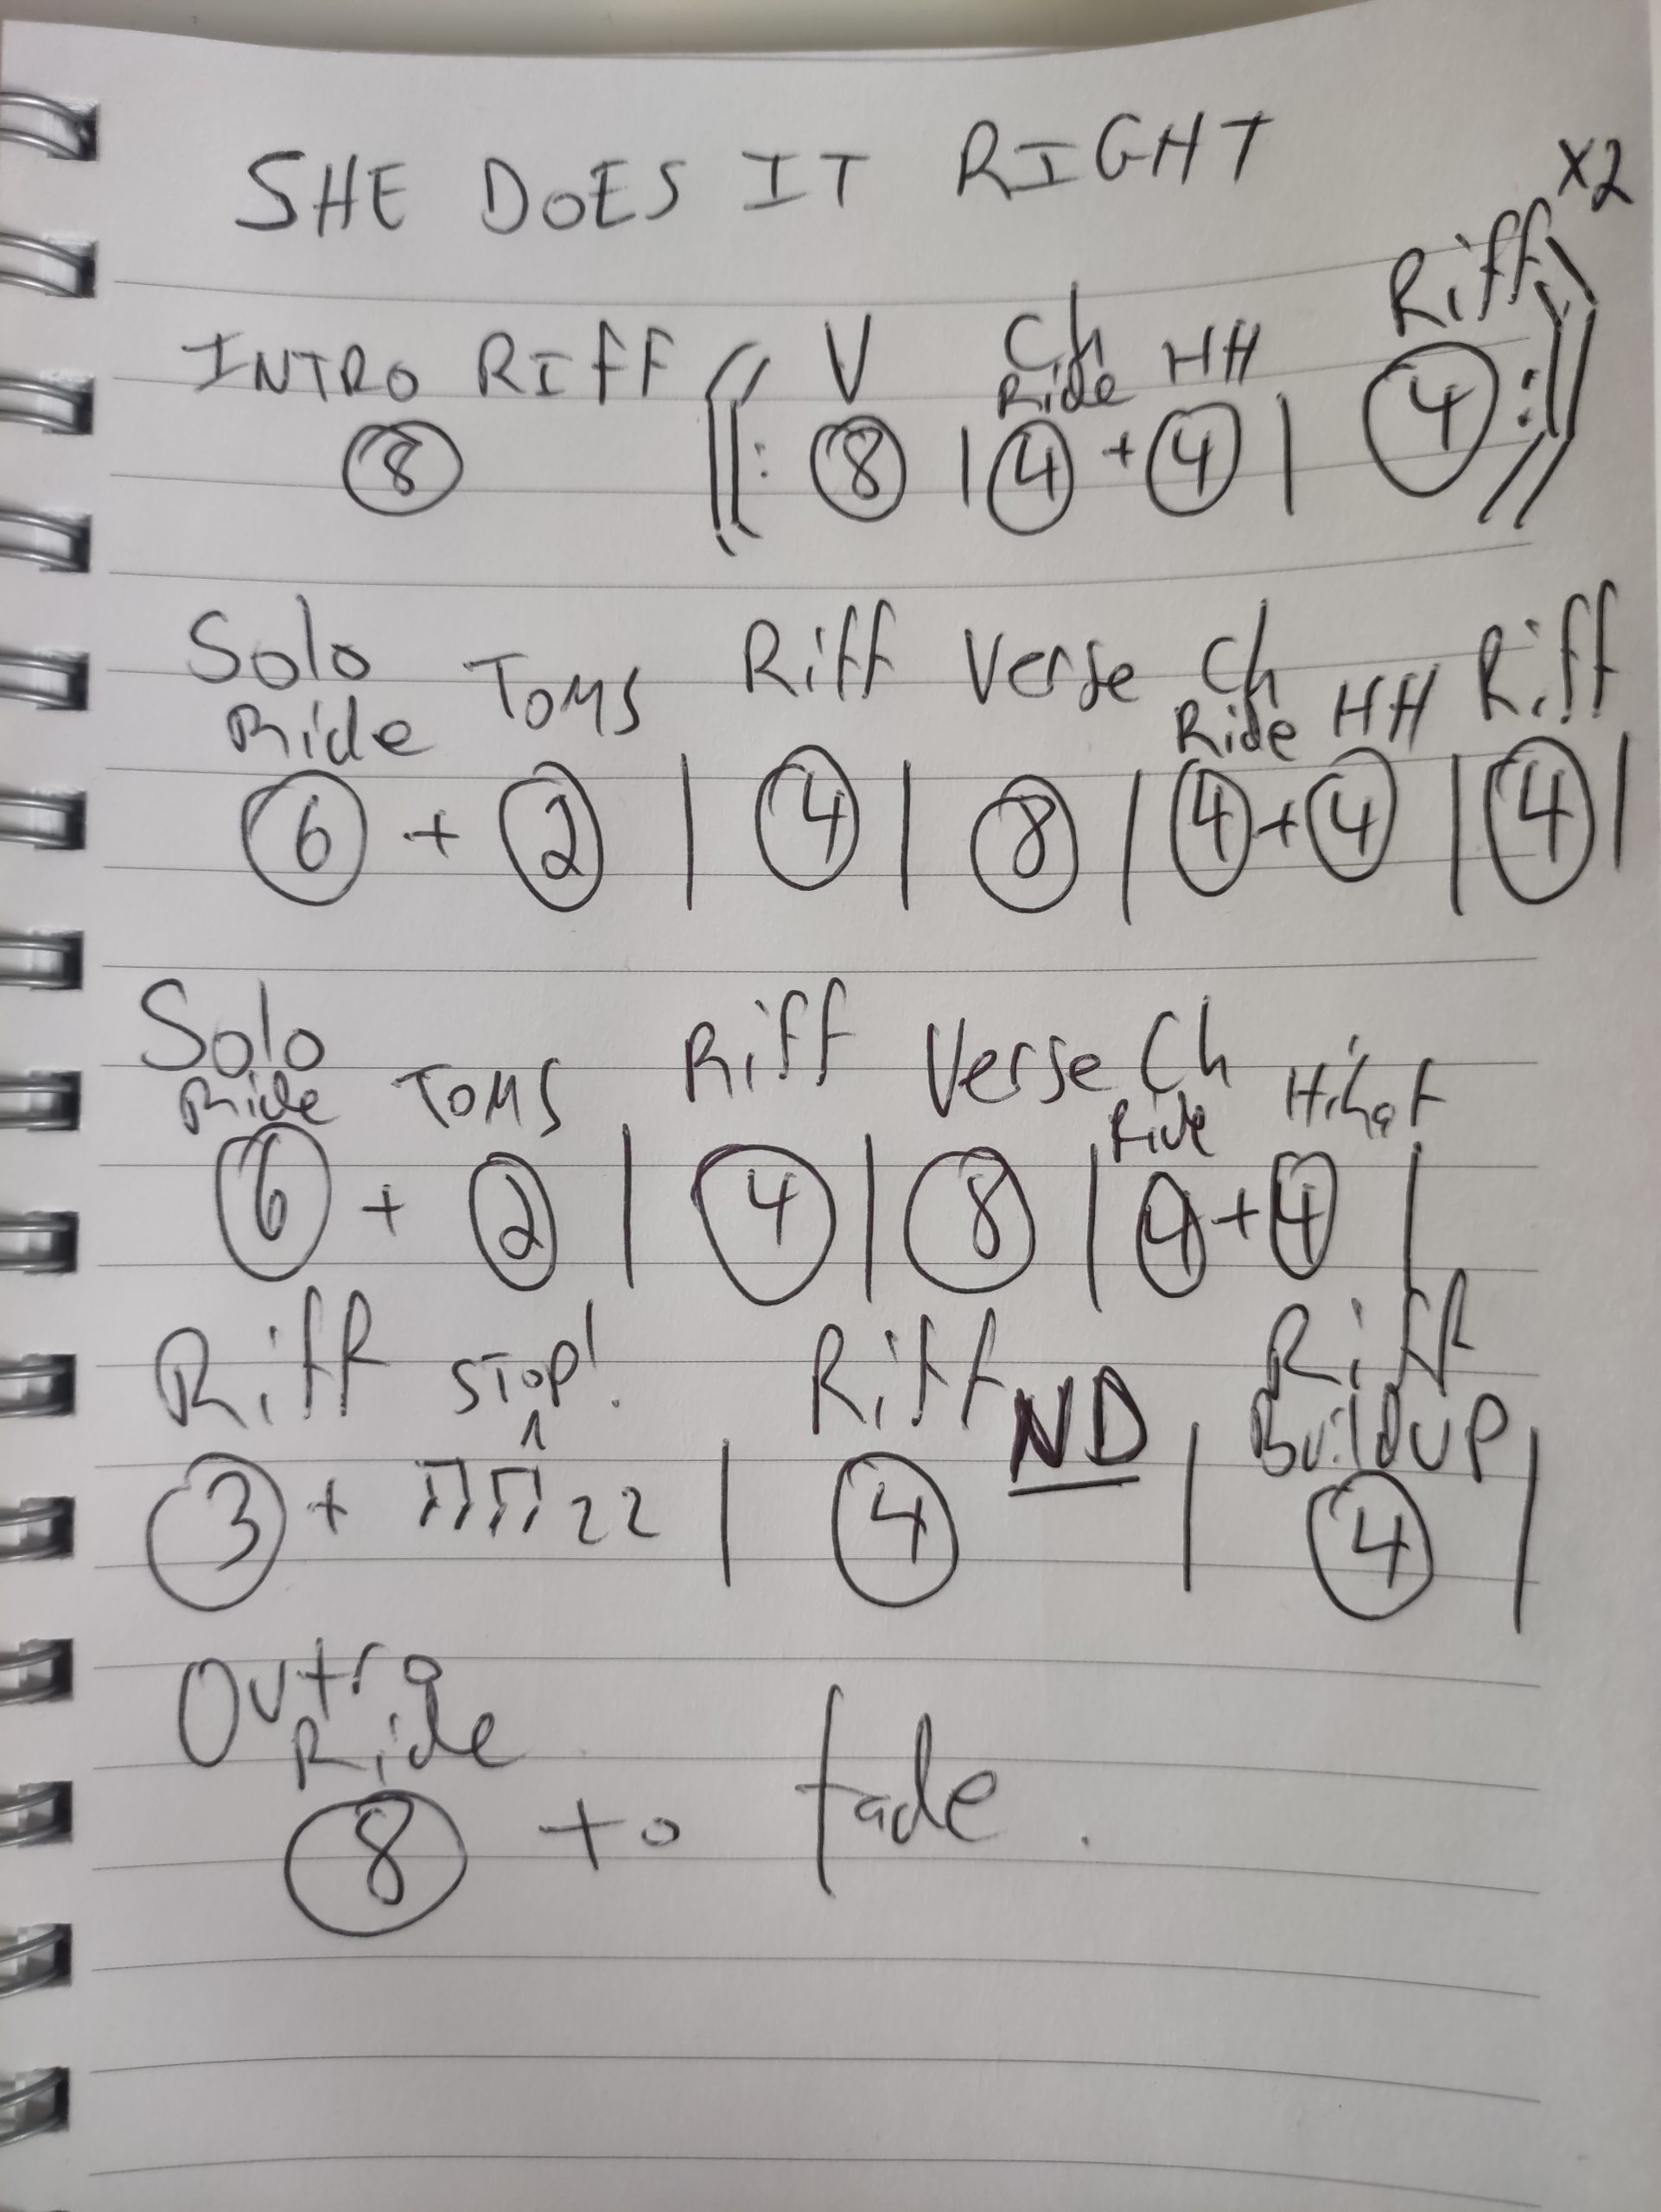 SHE DOES IT RIGHT
x2
INTRO RIFF V Ch HH Riff
Ride
8 ||: 8 | 4 + 4 | 4 :||
Solo Toms Riff Verse Ch HH Riff
Ride Ride
6 + 2 | 4 | 8 | 4 + 4 | 4 |
Solo Toms Riff Verse Ch Hihat
Ride Ride
6 + 2 | 4 | 8 | 4 + 4 |
Riff STOP! Riff ND Riff
Buildup
3 + ♫♫ 22 | 4 | 4 |
Outro
Ride
8 to fade.